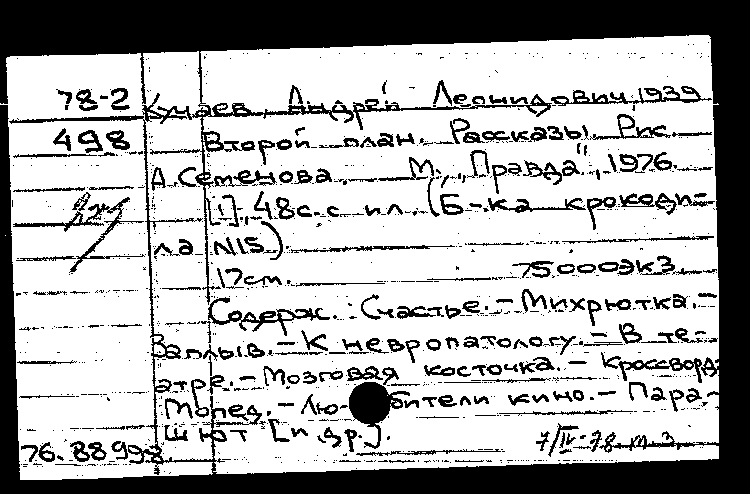 78-2 Кучаев, Андрей Леонидович, 1939
498 Второй план. Рассказы. Рис.
А. Семенова. М., „Правда“, 1976.
[1], 48 с. с ил. (Б-ка крокоди=
ла N15)
17см. 75000экз.
Содерж.: Счастье. – Михрютка. –
Заплыв. – К невропатологу. – В те-
атре. – Мозговая косточка. – Кроссворд.
Мопед. – Лю- бители кино. – Пара-
шют [и др.].
76. 88998. 7/IV-78. м.з.